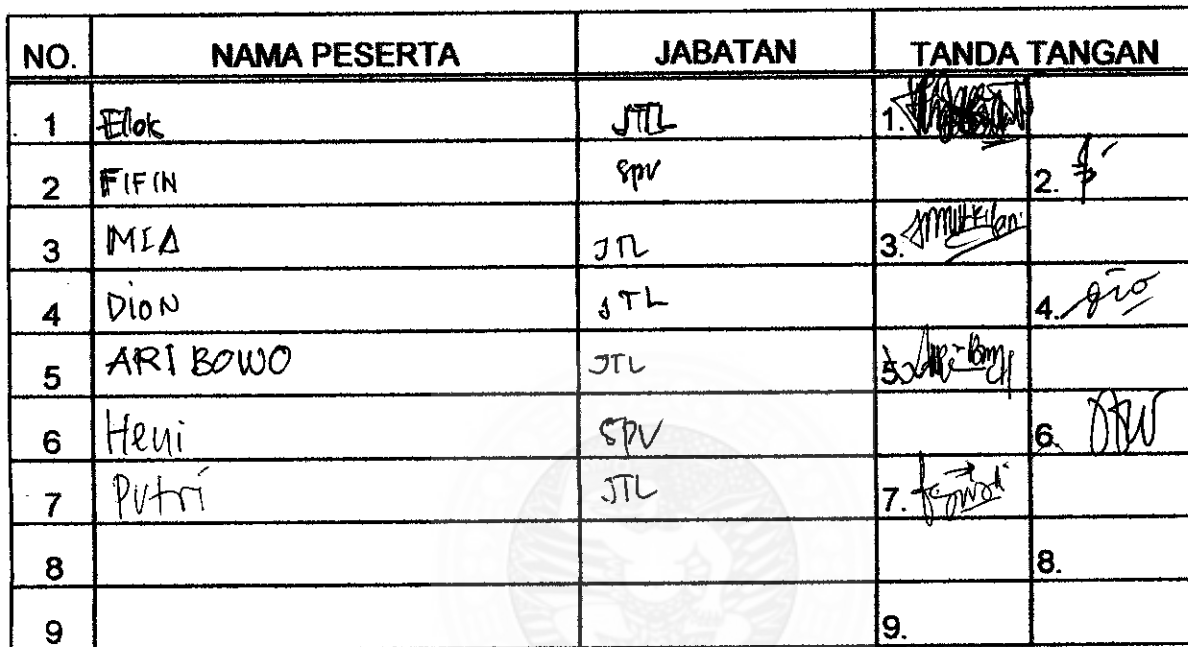 NO. NAMA PESERTA JABATAN TANDA TANGAN
1 Elok JTL 1.
2 FIFIN SPV 2.
3 MIA JTL 3.
4 Dion JTL 4.
5 ARI BOWO JTL 5.
6 Heni SPV 6.
7 Putri JTL 7.
8 8.
9 9.